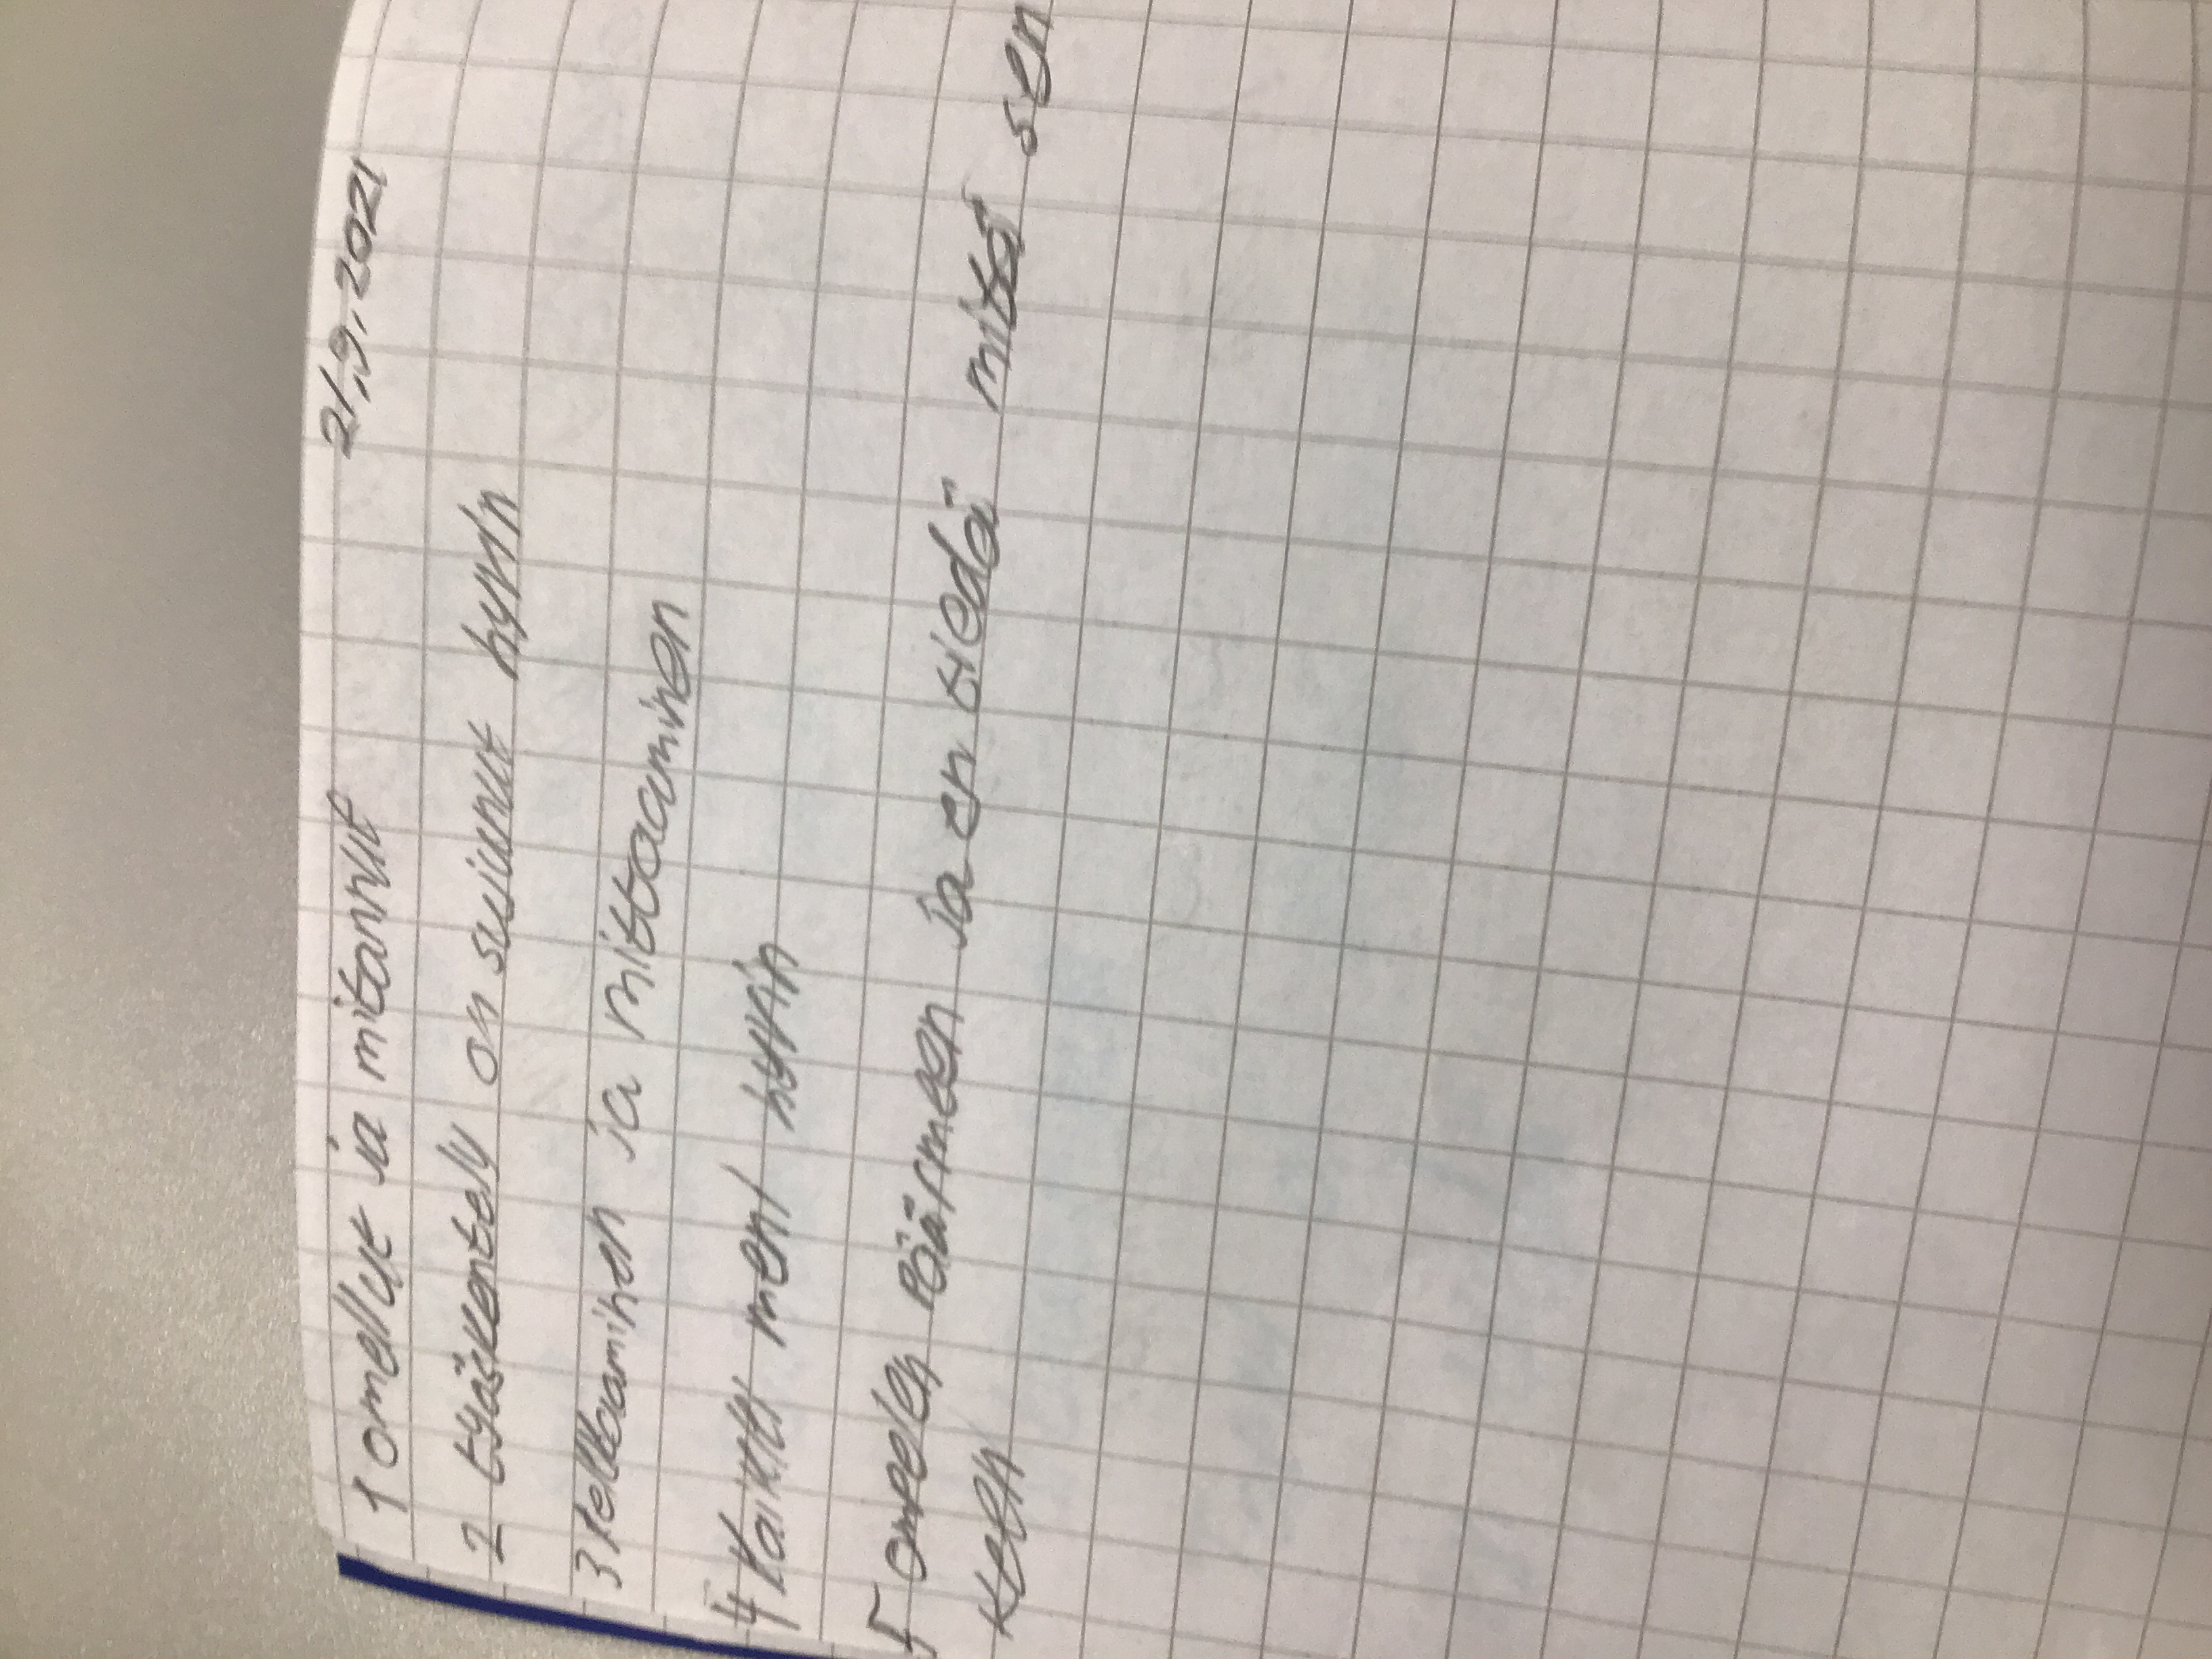 1 omellut ja mitannut 21.9.2021
2 työskentely on sujunut hyvin
3 leikkaaminen ja mittaaminen
4 Kaikki meni hyvin
5 ompelen päärmeen ja en tiedä mitä sen